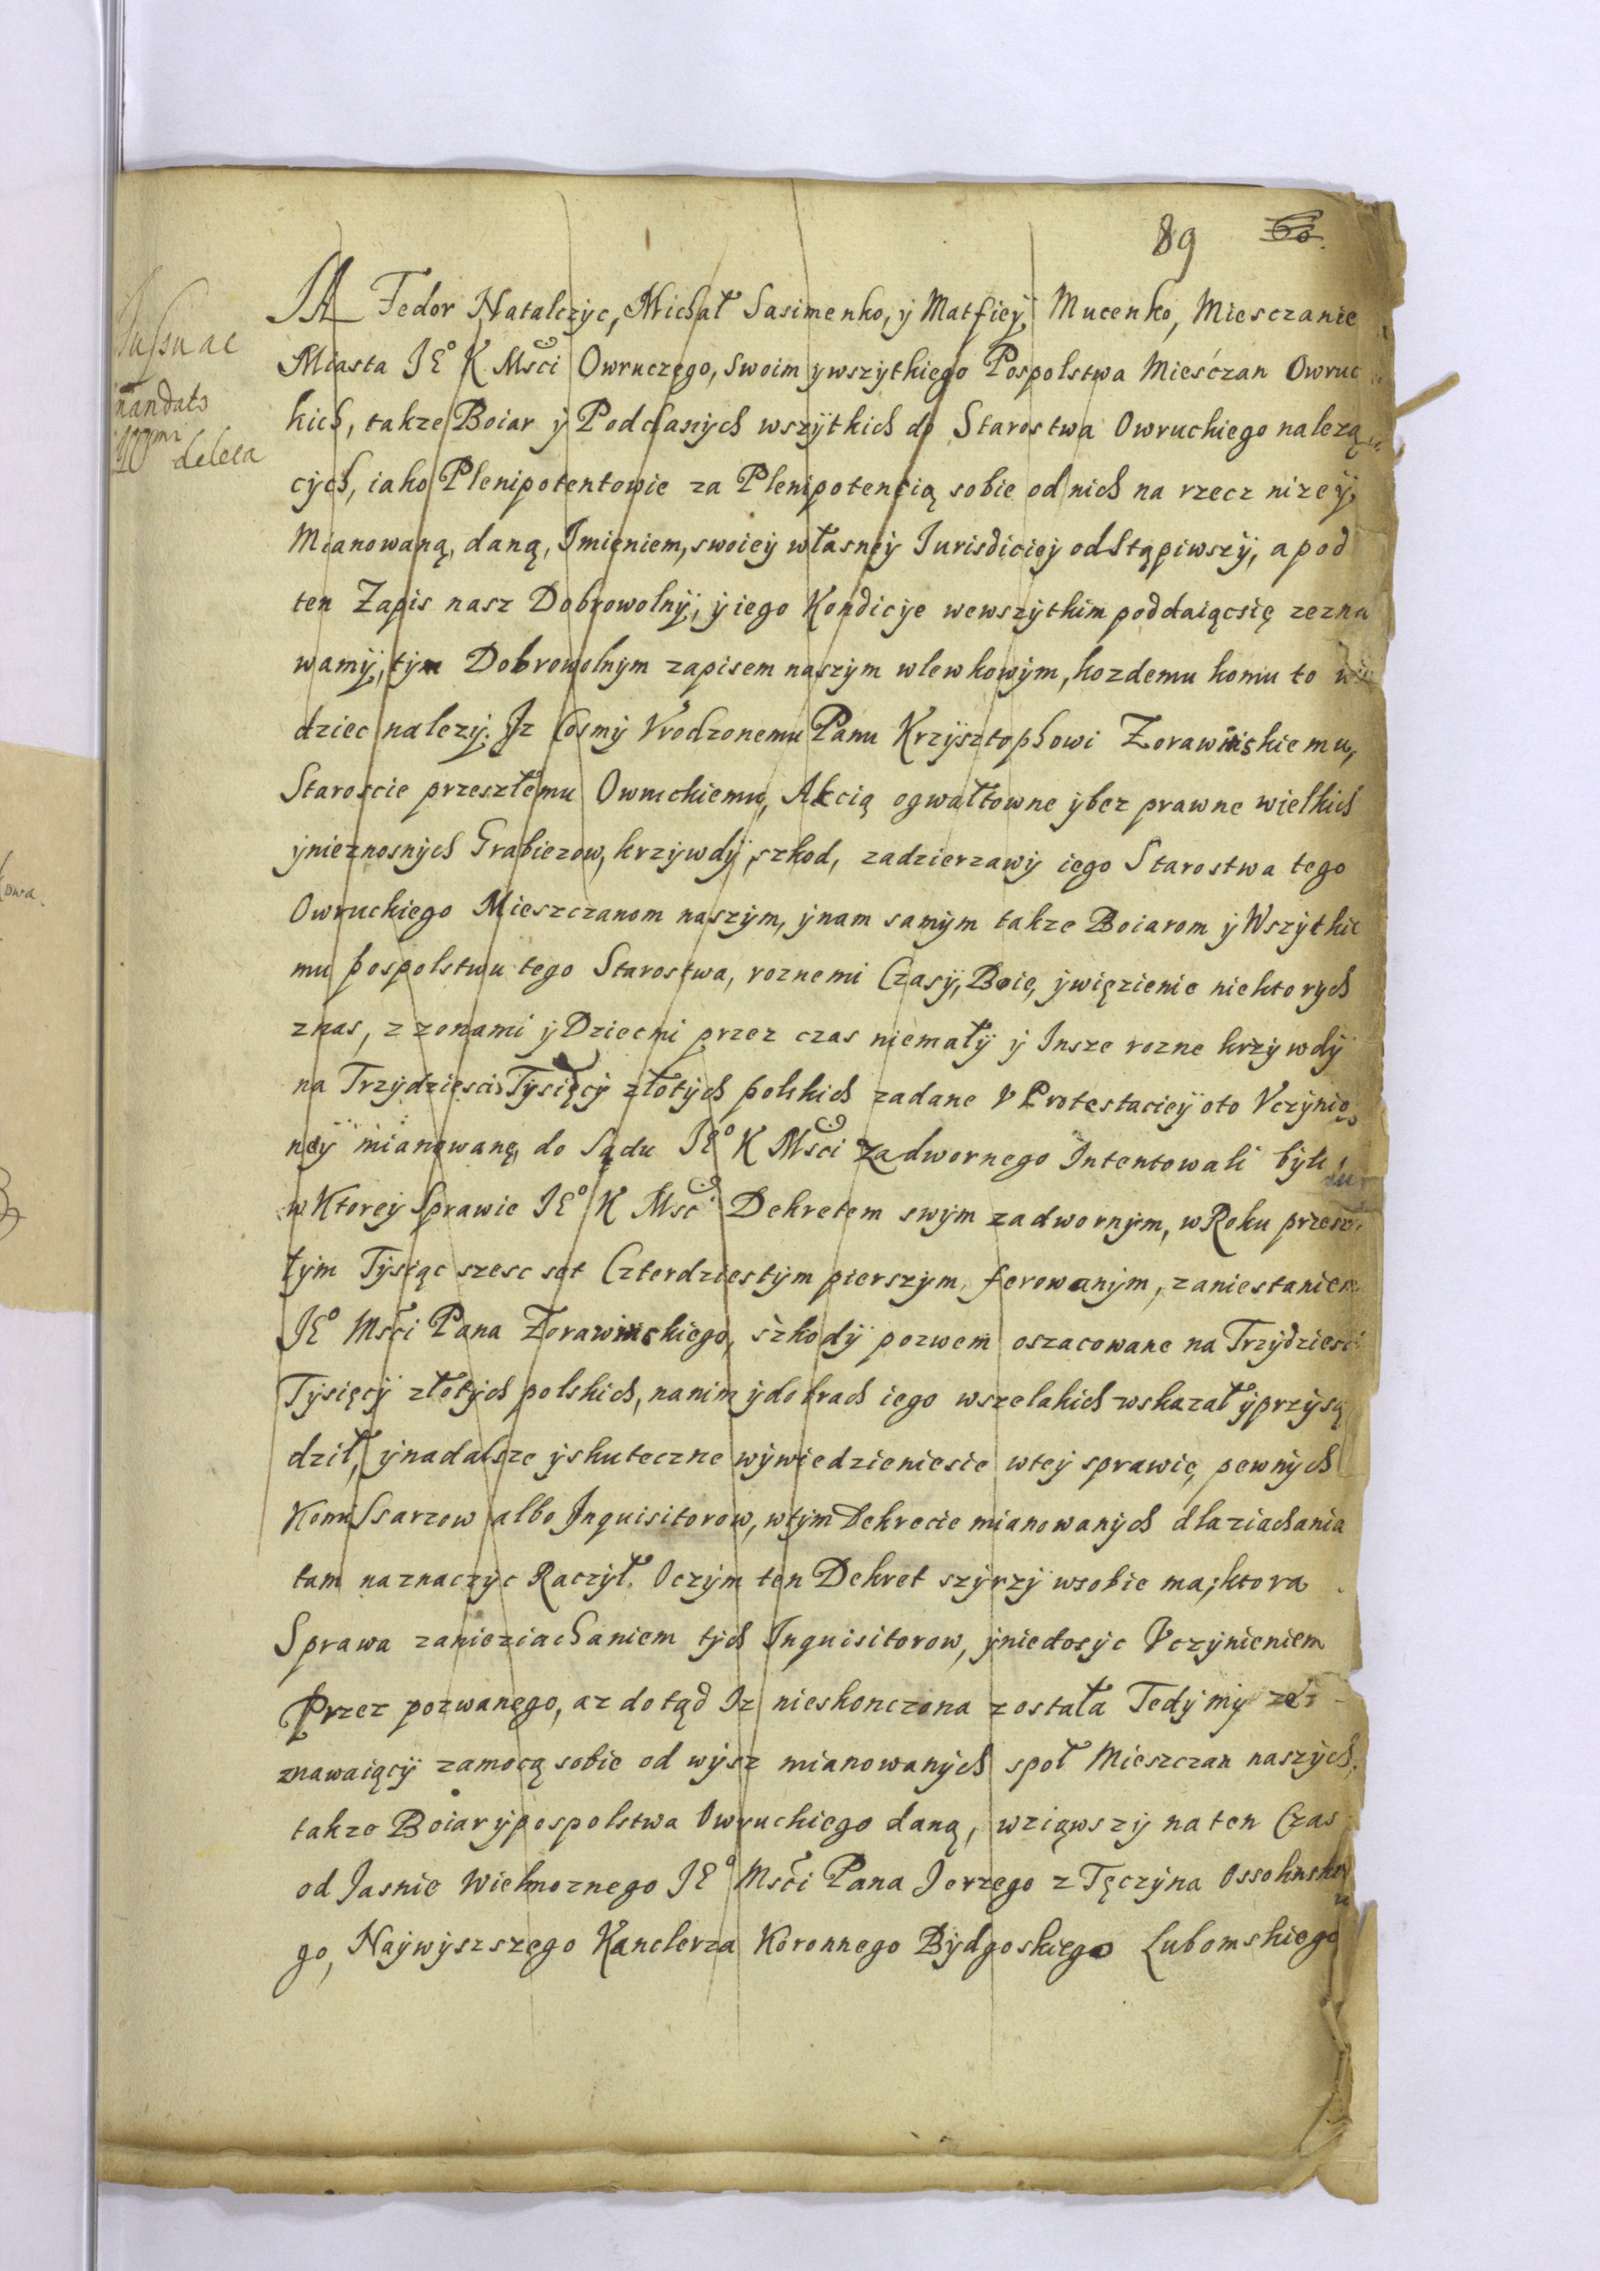 89 60.
Jussu ac
mandato
delata
JA Fedor Natalczyc, Michał Sasimenko, ÿ Matfieÿ Mucenko, Miesczanie
Miasta JE° K Msći Owruczego, Swoim ÿwszÿtkiego Pospolstwa Mieśćzan Owruc
kich, takze Boiar ÿ Poddanÿch wszÿtkich do Starostwa Owruckiego nalezą
cÿch, iako Plenipotentowie za Plenipotencią sobie od nich na rzecz nizeÿ
Mianowaną, daną, Imieniem, swoieÿ własneÿ Iurisdicieÿ odstąpiwszÿ, a pod
ten Zapis nasz Dobrowolnÿ, ÿ iego Kondicÿe wewszÿtkim poddaiącsię zezna
wamÿ, tÿm Dobrowolnÿm zapisem naszÿm wlewkowÿm, kozdemu komu to wie
dziec nalezÿ. Iz cosmÿ Vrodzonemu Panu Krzÿsztophowi Zorawinskiemu,
Staroscie przeszłemu Owruckiemu, Akcią ogwałtowne ÿbez prawne wielkich
ÿnieznosnÿch Grabiezow, krzÿwdÿ, szkod, zadzierzawÿ iego Starostwa tego
Owruckiego Mieszczanom naszÿm, ÿnam samÿm takze Boiarom ÿ Wszÿtkie
mu pospolstwu tego Starostwa, roznemi Czasÿ, Boie, ÿwięzienie niektorych
znas, z zonami ÿ Dziecmi przez czas niemałÿ ÿ Insze rozne krzÿwdÿ
na Trzÿdziesci Tÿsięcÿ złotÿch polskich zadane V Protestacieÿ oto Vczÿnio
neÿ mianowanę, do Sądu JE° K Msći Zadwornego Intentowali bÿli
w Ktoreÿ Sprawie JE° K Msć Dekretem swÿm zadwornÿm, w Roku przesz
łÿm Tÿsiąc szesc set Czterdziestÿm pierszÿm, ferowanÿm, zaniestaniem
JE° Msći Pana Zorawinskiego, szkodÿ pozwem oszacowane na Trzÿdziesci
Tÿsięcÿ złotÿch polskich, nanim ÿdobrach iego wszelakich wskazał ÿprzÿsą
dził, ÿnadalsze ÿskuteczne wÿwiedzieniesie wteÿ sprawie, pewnÿch
Komissarzow albo Inquisitorow, wtÿm Dekrecie mianowanÿch dlaziachania
tam naznaczÿc Raczÿł. Oczÿm ten Dekret szÿrzÿ wsobie ma; ktora
Sprawa zanieziachaniem tÿch Inquisitorow, ÿniedosÿc Vczÿnieniem
Przez pozwanego, az dotąd Iz nieskonczona została Tedÿ mÿ zez
znawaiącÿ zamocą sobie od wÿsz mianowanÿch społ Mieszczan naszÿch,
takze Boiar ÿpospolstwa Owruckiego daną, wziąwszÿ na ten Czas
od Jasnie Wielmoznego JE° Msći Pana Jerzego z Tęczÿna Ossolinskie
go, Naÿwÿszszego Kanclerza Koronnego Bÿdgoskiego Lubomskiego